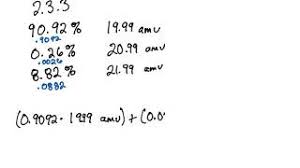 2.3.3
90.92% 19.99 amu
.9092
0.26% 20.99 amu
.0026
8.82% 21.99 amu
.0882
(0.9092 · 19.99 amu) + (0.0